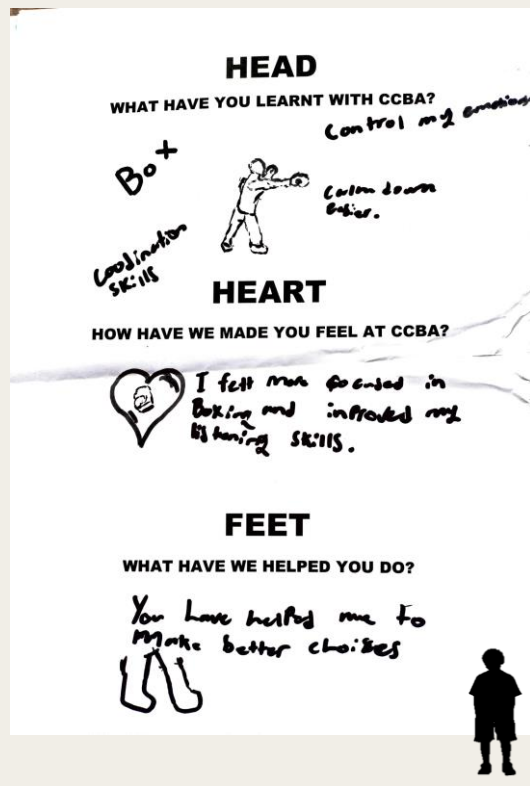 HEAD
WHAT HAVE YOU LEARNT WITH CCBA?
Control my emotions
Bo+
Calm down
Easier.
Coodination
skills
HEART
HOW HAVE WE MADE YOU FEEL AT CCBA?
I felt more focused in
Boxing and inproved my
listening skills.
FEET
WHAT HAVE WE HELPED YOU DO?
You have helped me to
Make better choises